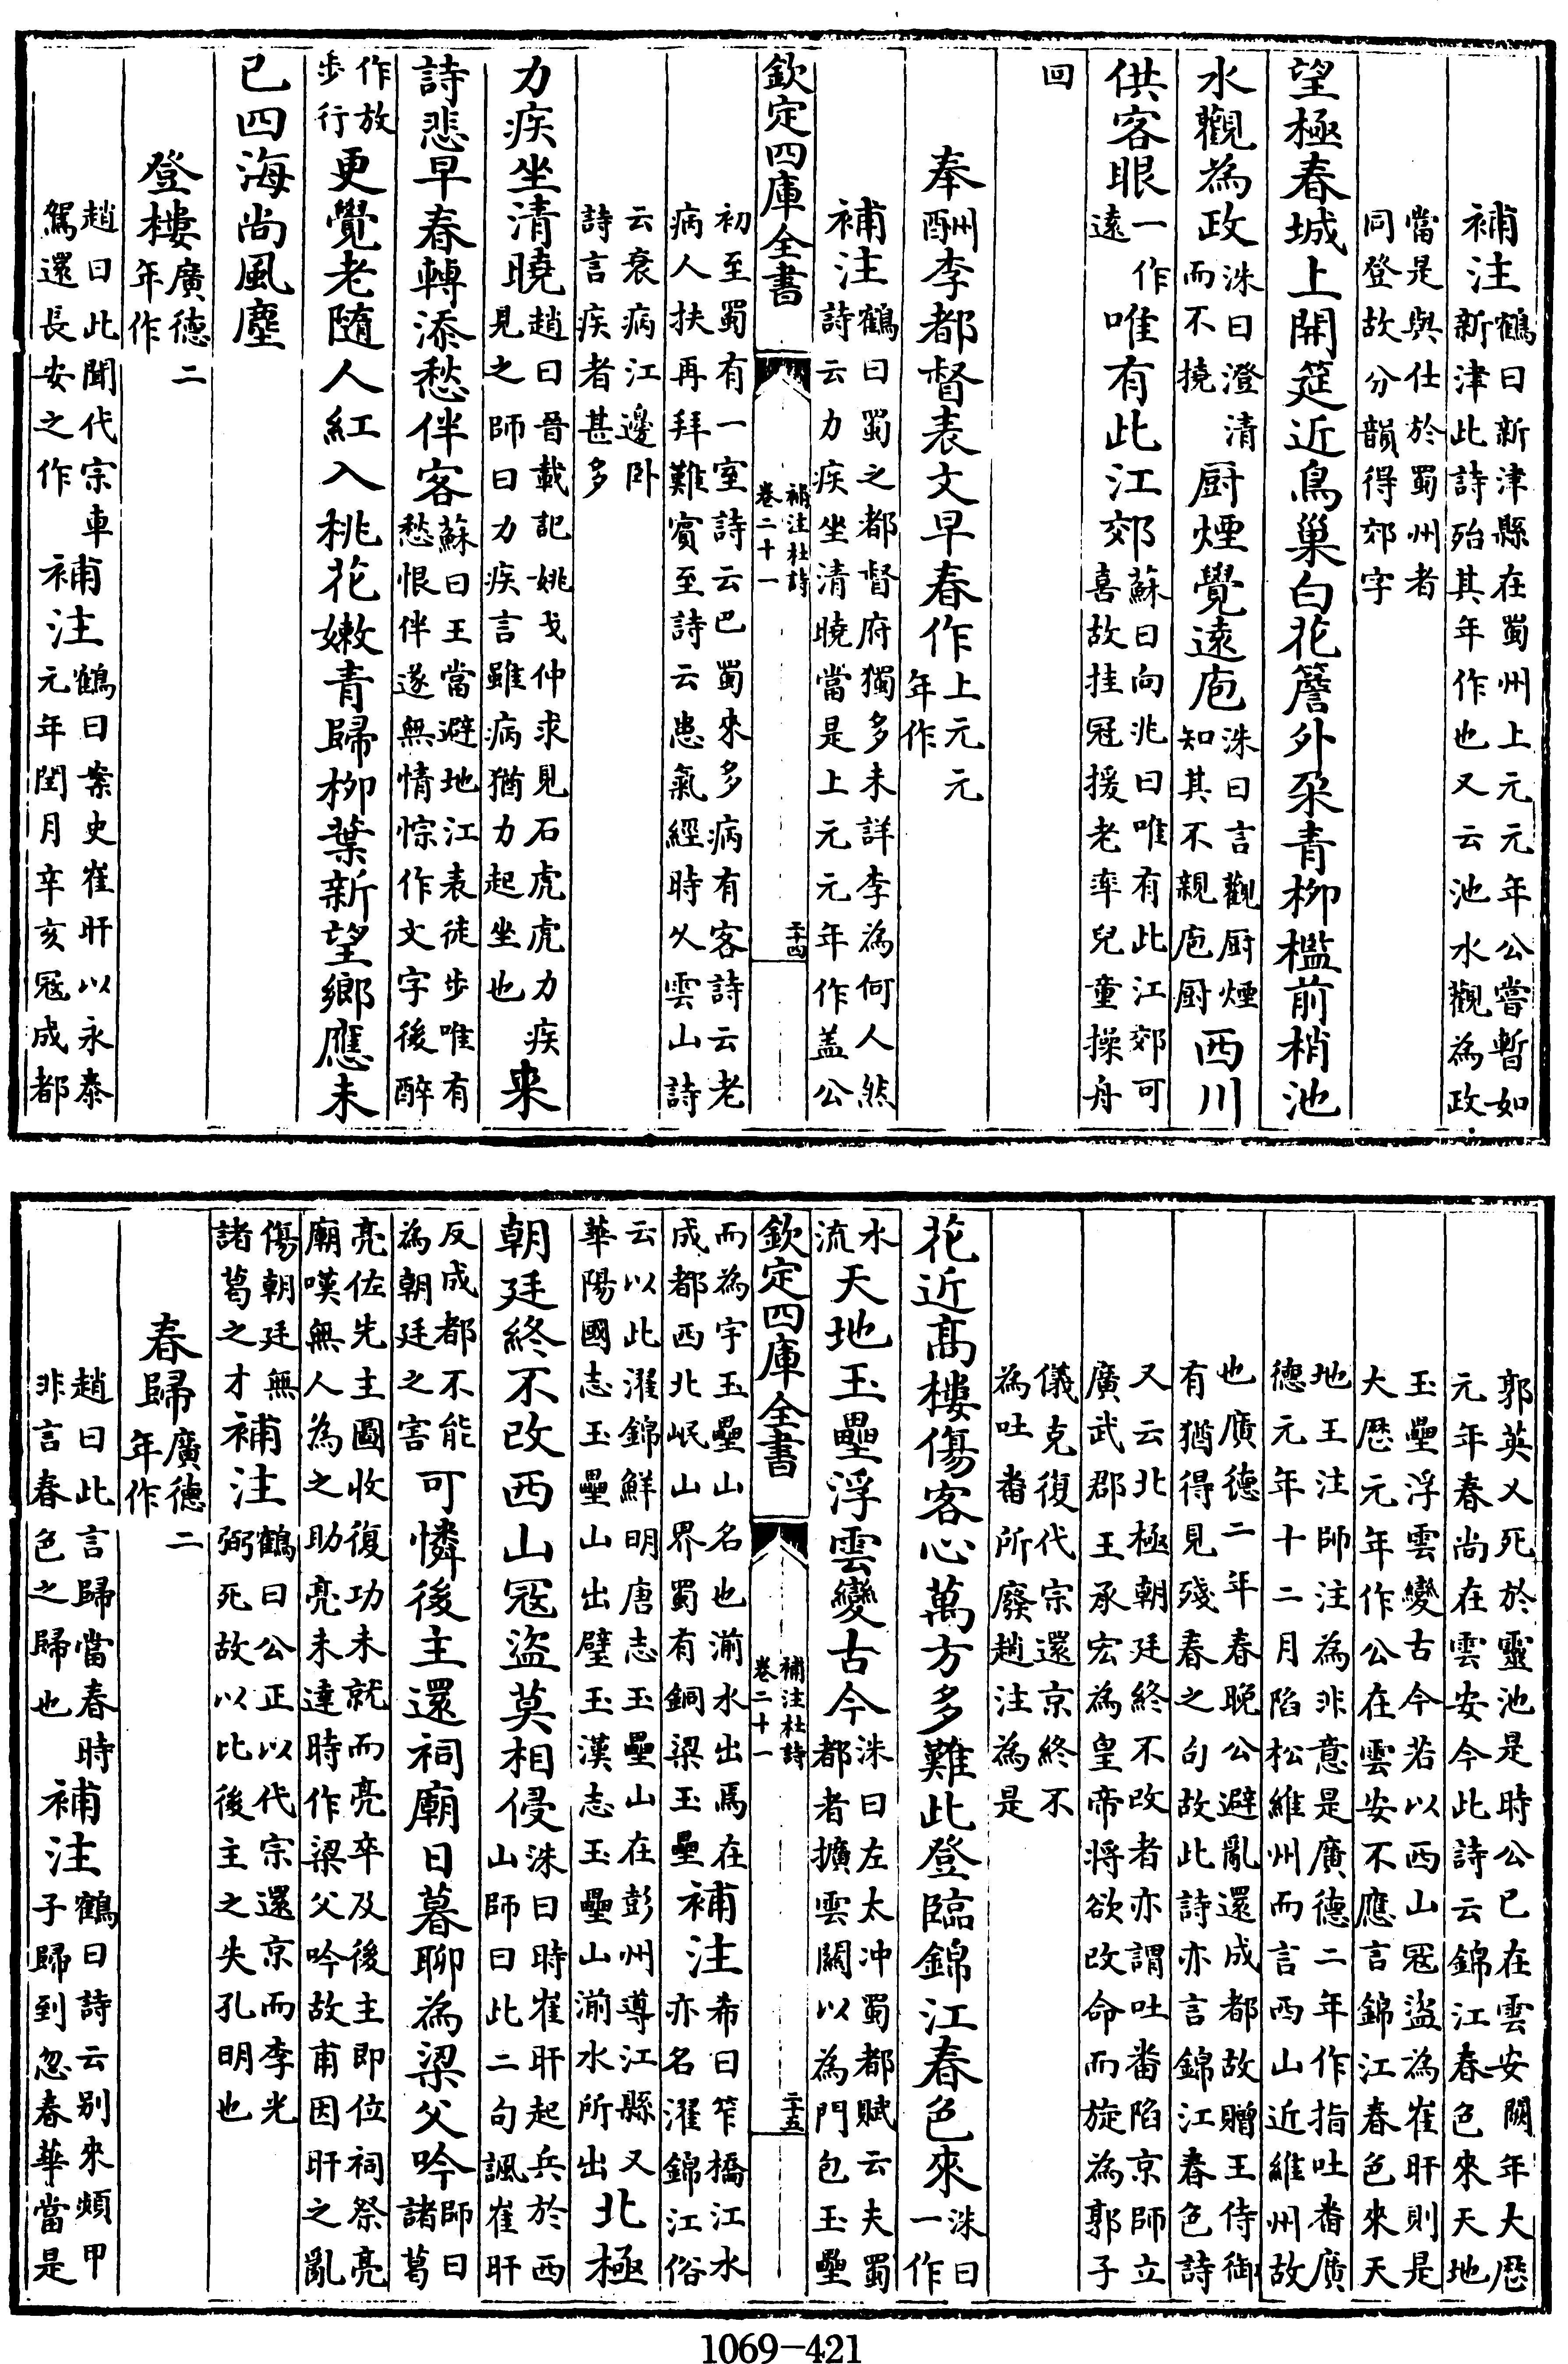 補注鶴曰新津縣在蜀州上元元年公嘗暫如新津此詩殆其年作也又云池水觀為政
當是與仕於蜀州者同登故分韻得郊字
望極春城上開筵近鳥巢白花簷外朶青柳檻前梢池
水觀為政洙曰澄清而不撓厨煙覺遠庖洙曰言觀厨煙知其不親庖厨西川
供客眼一作遠唯有此江郊蘇曰向兆曰唯有此江郊可喜故挂冠援老率兒童操舟
回
奉酬李都督表文早春作上元元年作
補注鶴曰蜀之都督府獨多未詳李為何人然詩云力疾坐清曉當是上元元年作盖公
欽定四庫全書
補注杜詩
卷二十一
二十四
初至蜀有一室詩云巴蜀來多病有客詩云老病人扶再拜難賓至詩云患氣經時久雲山詩
云衰病江邊卧詩言疾者甚多
力疾坐清曉趙曰晉載記姚弋仲求見石虎虎力疾見之師曰力疾言雖病猶力起坐也来
詩悲早春轉添愁伴客蘇曰王當避地江表徒步唯有愁恨伴遂無情悰作文字後醉
作放步行更覺老隨人紅入桃花嫩青歸柳葉新望鄉應未
已四海尚風塵
登樓廣德二年作
趙曰此聞代宗車駕還長安之作補注鶴曰案史崔旰以永泰元年閏月辛亥冦成都
郭英乂死於靈池是時公已在雲安閼年大歷元年春尚在雲安今此詩云錦江春色來天地
玉壘浮雲變古今若以西山冦盜為崔旰則是大歷元年作公在雲安不應言錦江春色來天
地王注師注為非意是廣德二年作指吐番廣德元年十二月陷松維州而言西山近維州故
也廣德二年春晚公避亂還成都故贈王侍御有猶得見殘春之句故此詩亦言錦江春色詩
又云北極朝廷終不改者亦謂吐番陷京師立廣武郡王承宏為皇帝將欲改命而旋為郭子
儀克復代宗還京終不為吐番所廢趙注為是
花近高樓傷客心萬方多難此登臨錦江春色來洙曰一作
水流天地玉壘浮雲變古今洙曰左太冲蜀都賦云夫蜀都者擴雲關以為門包玉壘
欽定四庫全書
補注杜詩
卷二十一
二十五
而為宇玉壘山名也湔水出焉在成都西北岷山界蜀有銅梁玉壘補注希曰笮橋江水亦名濯錦江俗
云以此濯錦鮮明唐志玉壘山在彭州導江縣又華陽國志玉壘山出璧玉漢志玉壘山湔水所出北極
朝廷終不改西山冦盜莫相侵洙曰時崔旰起兵於西山師曰此二句諷崔旰
反成都不能為朝廷之害可憐後主還祠廟日暮聊為梁父吟師曰諸葛
亮佐先主圖收復功未就而亮卒及後主即位祠祭亮廟嘆無人為之助亮未達時作梁父吟故甫因旰之亂
傷朝廷無諸葛之才補注鶴曰公正以代宗還京而李光弼死故以比後主之失孔明也
春歸廣德二年作
趙曰此言歸當春時非言春色之歸也補注鶴曰詩云别來頻甲子歸到忽春華當是
1069-421